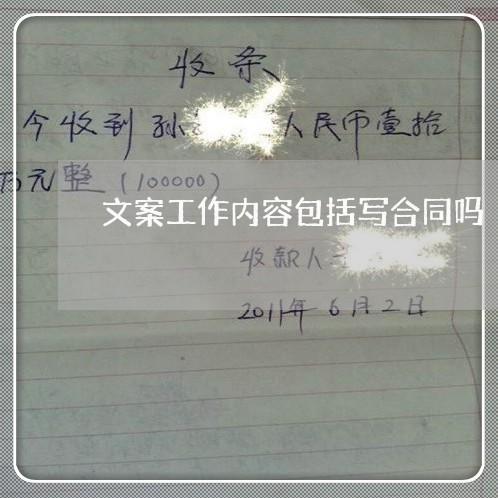 收条
今收到孙 人民币壹拾
万元整（100000）
文案工作内容包括写合同吗
收款人
2011年6月2日